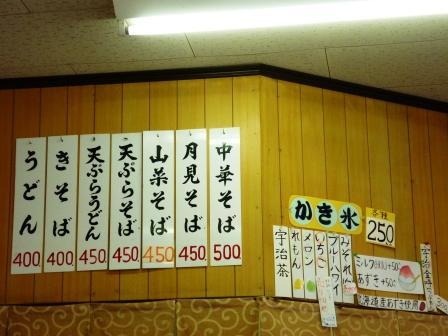 中華そば 500
月見そば 450
山菜そば 450
天ぷらそば 450
天ぷらうどん 450
きそば 400
うどん 400
かき氷
各種 250
みぞれ
ブルーハワイ
いちご
メロン
れもん
宇治茶
ミルク +50
あずき +50
北海道産あずき使用